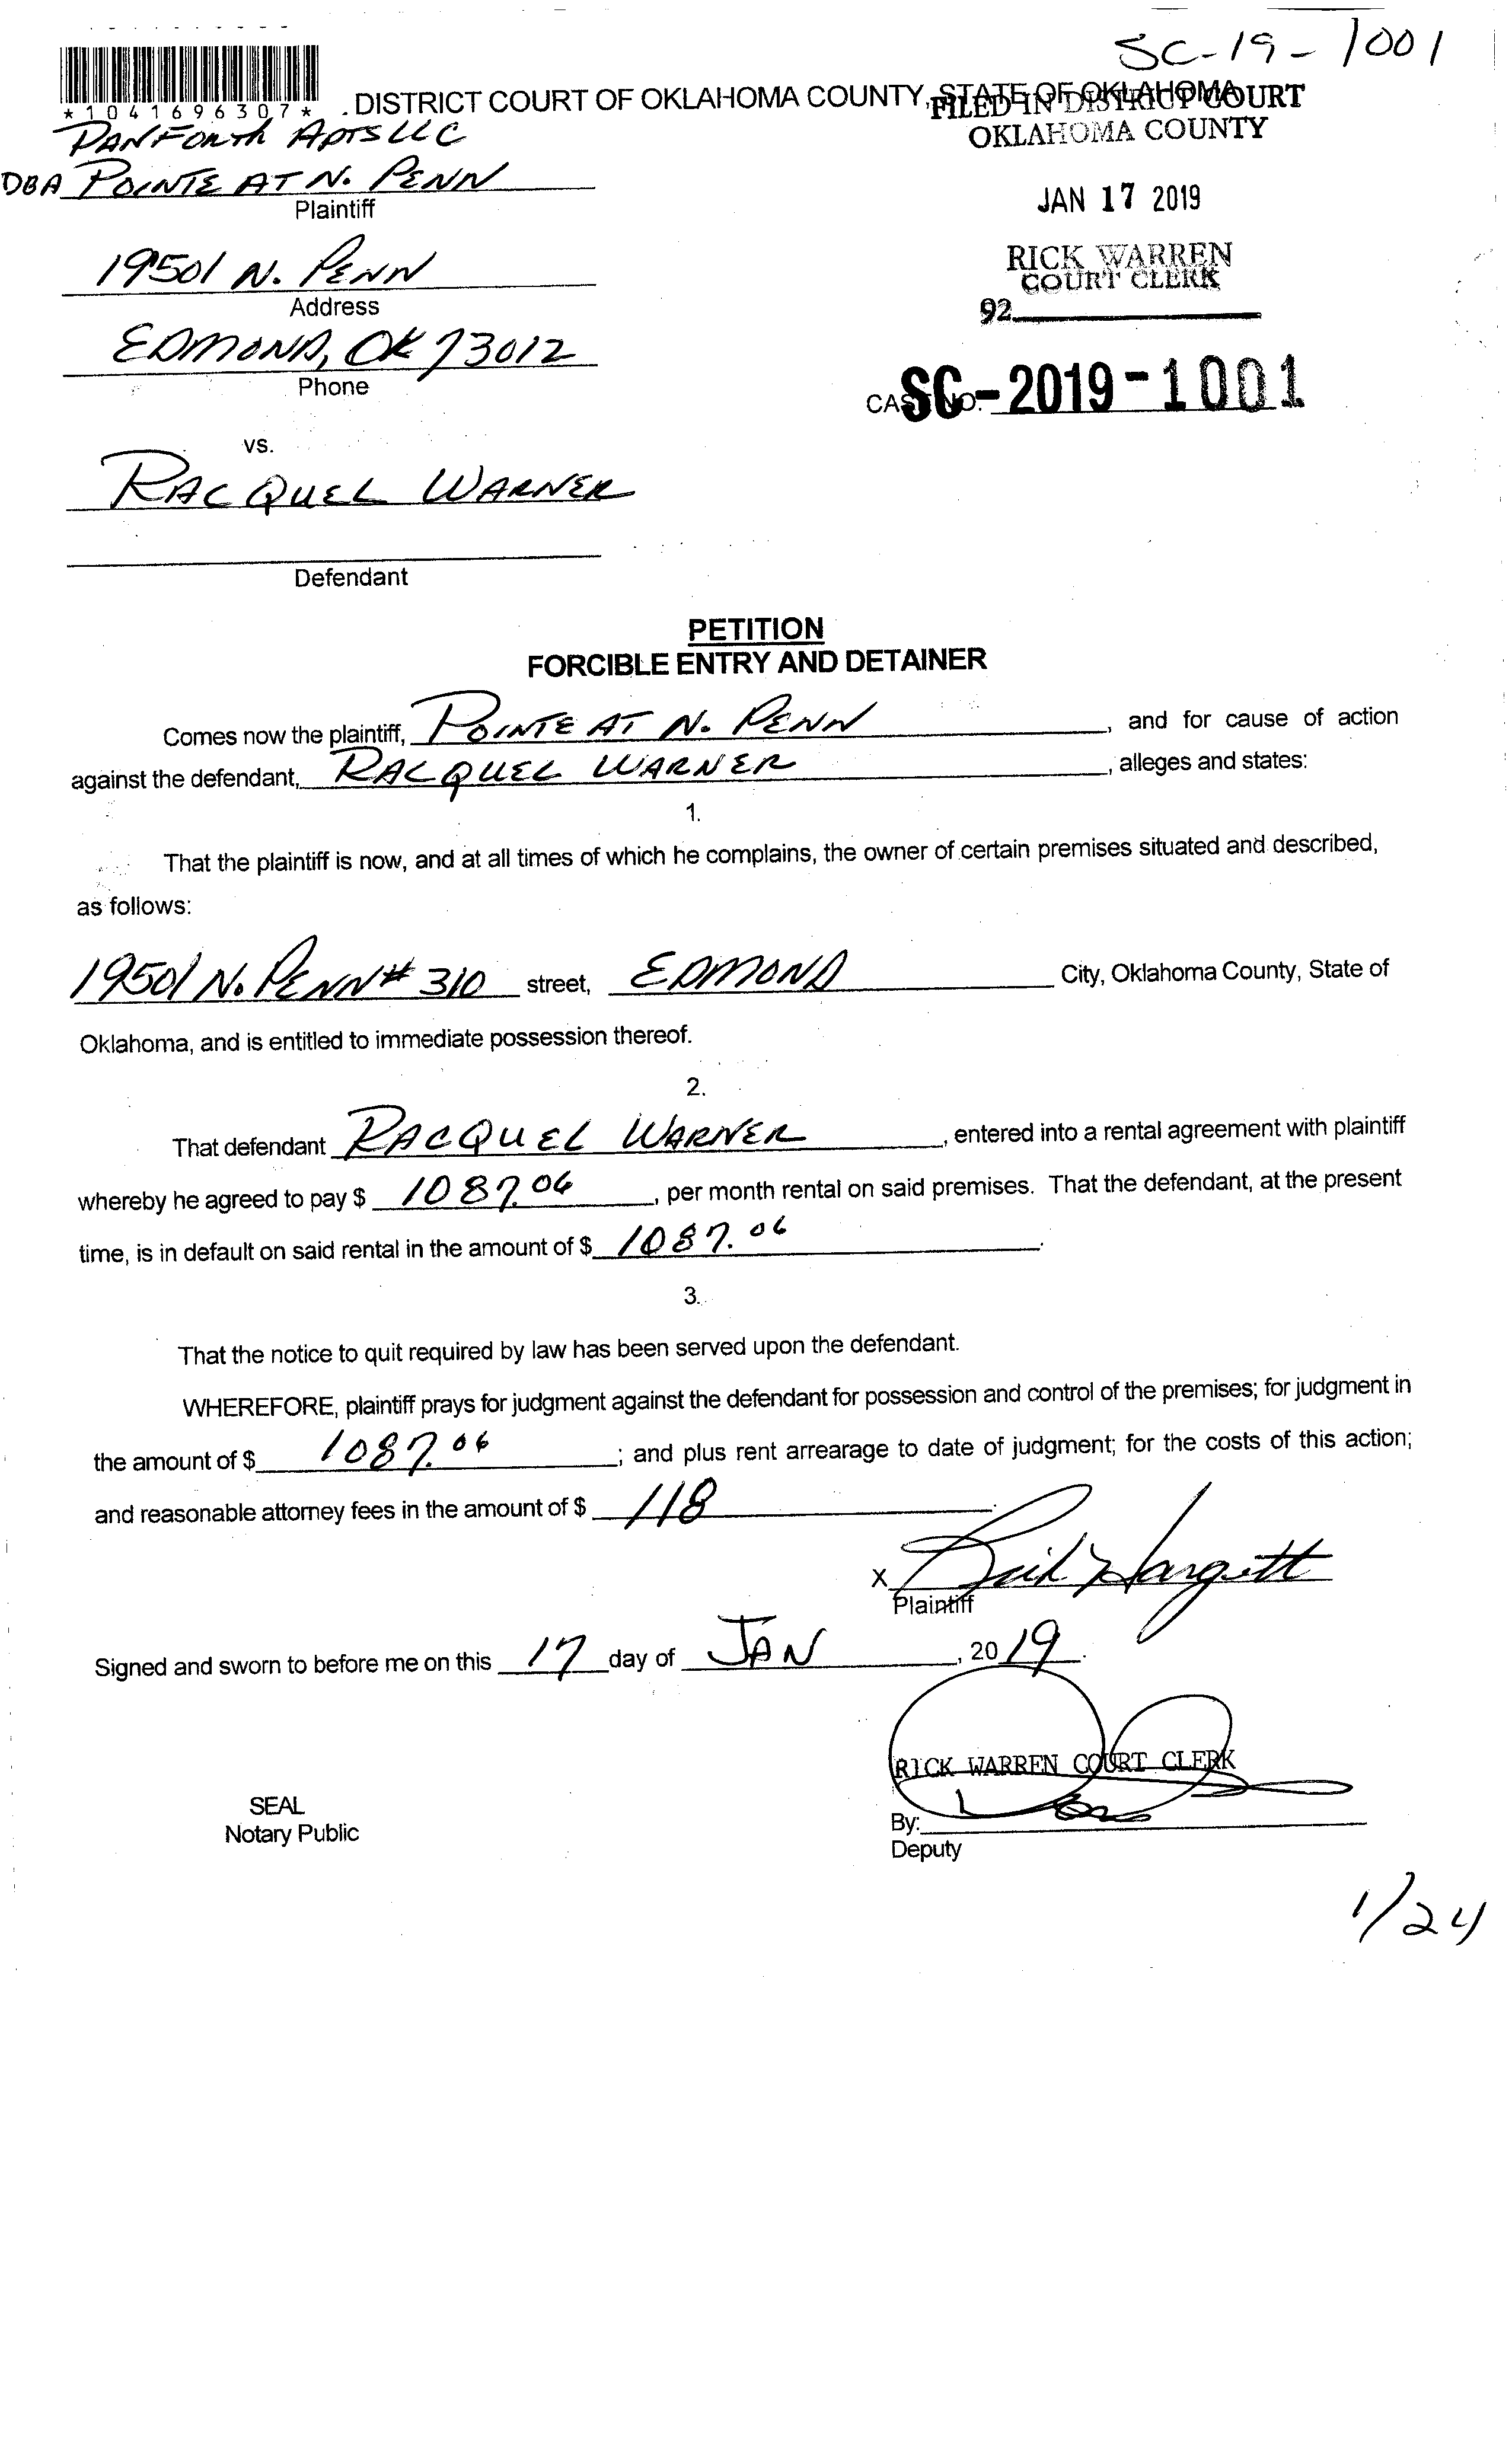 SC-19-1001
*1041696307*
DISTRICT COURT OF OKLAHOMA COUNTY, STATE OF OKLAHOMA
FILED IN DISTRICT COURT
OKLAHOMA COUNTY
DANFORTH APTS LLC
DBA POINTE AT N. PENN
Plaintiff
JAN 17 2019
19501 N. PENN
Address
RICK WARREN
COURT CLERK
92
EDMOND, OK 73012
Phone
CASE NO. SC-2019-1001
vs.
RACQUEL WARNER
Defendant
PETITION
FORCIBLE ENTRY AND DETAINER
Comes now the plaintiff, POINTE AT N. PENN, and for cause of action
against the defendant, RACQUEL WARNER, alleges and states:
1.
That the plaintiff is now, and at all times of which he complains, the owner of certain premises situated and described,
as follows:
19501 N. PENN # 310 street, EDMOND City, Oklahoma County, State of
Oklahoma, and is entitled to immediate possession thereof.
2.
That defendant RACQUEL WARNER, entered into a rental agreement with plaintiff
whereby he agreed to pay $ 1087.06, per month rental on said premises. That the defendant, at the present
time, is in default on said rental in the amount of $ 1087.06.
3.
That the notice to quit required by law has been served upon the defendant.
WHEREFORE, plaintiff prays for judgment against the defendant for possession and control of the premises; for judgment in
the amount of $ 1087.06; and plus rent arrearage to date of judgment; for the costs of this action;
and reasonable attorney fees in the amount of $ 118.
X Hargett
Plaintiff
Signed and sworn to before me on this 17 day of JAN, 2019.
RICK WARREN COURT CLERK
SEAL
Notary Public
By:
Deputy
1/24